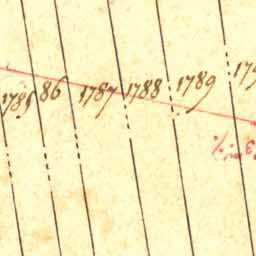 1785 86 1787 1788 1789